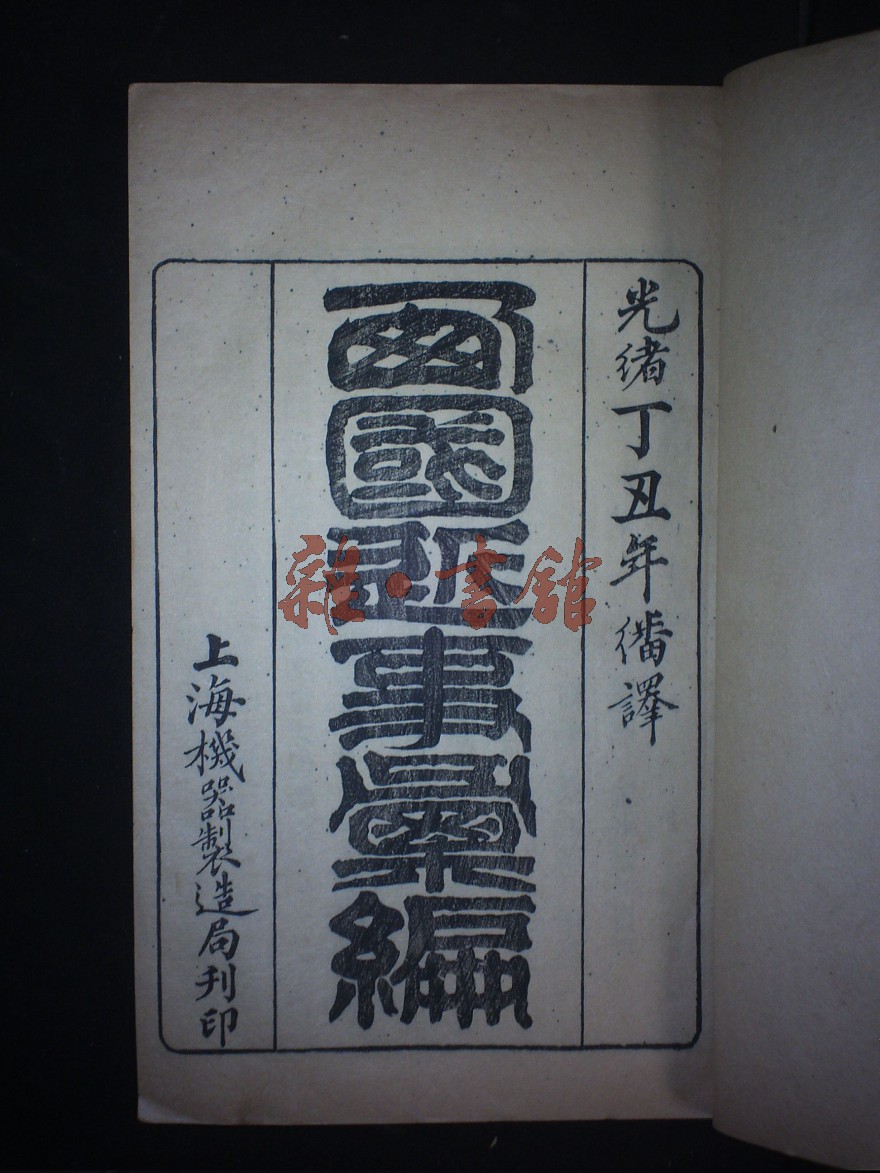 光緒丁丑年繙譯
西國近事彙編
上海機器製造局刊印
雜·書館